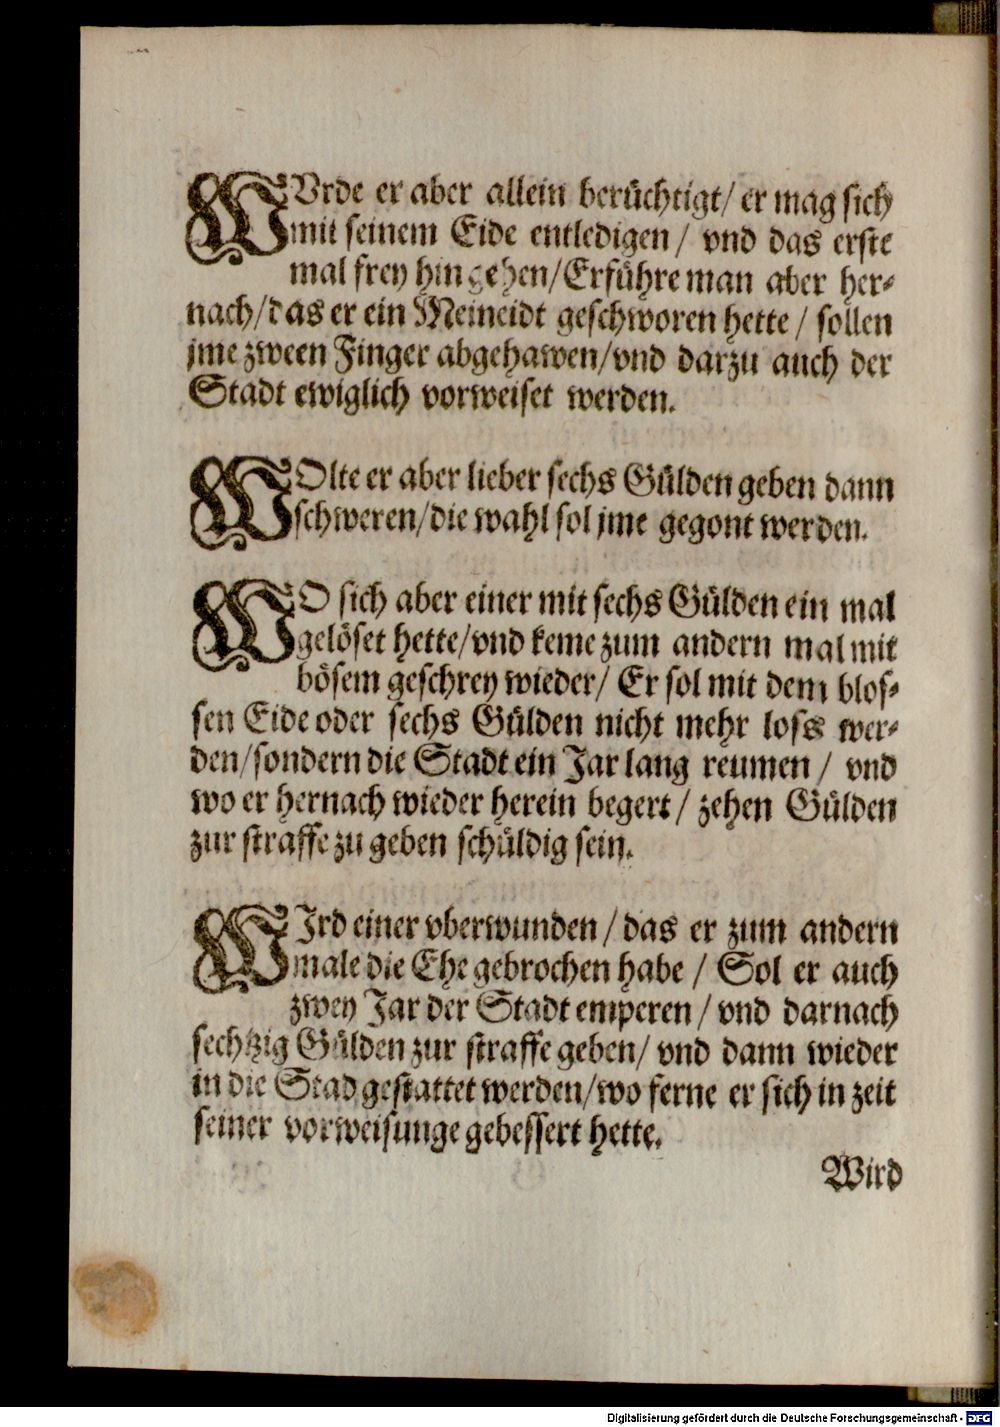 WVrde er aber allein berüchtigt/ er mag sich
mit seinem Eide entledigen / vnd das erste
mal frey hingehen/Erführe man aber her-
nach/das er ein Meineidt geschworen hette / sollen
jme zween Finger abgehawen/vnd darzu auch der
Stadt ewiglich vorweiset werden.
WOlte er aber lieber sechs Gülden geben dann
schweren/die wahl sol jme gegont werden.
WO sich aber einer mit sechs Gülden ein mal
gelöset hette/vnd keme zum andern mal mit
bösem geschrey wieder/ Er sol mit dem blos-
sen Eide oder sechs Gülden nicht mehr loss wer-
den/sondern die Stadt ein Jar lang reumen / vnd
wo er hernach wieder herein begert / zehen Gülden
zur straffe zu geben schüldig sein.
WIrd einer vberwunden / das er zum andern
male die Ehe gebrochen habe / Sol er auch
zwey Jar der Stadt emperen / vnd darnach
sechtzig Gülden zur straffe geben/ vnd dann wieder
in die Stad gestattet werden/wo ferne er sich in zeit
seiner vorweisunge gebessert hette.
Wird
Digitalisierung gefördert durch die Deutsche Forschungsgemeinschaft - DFG